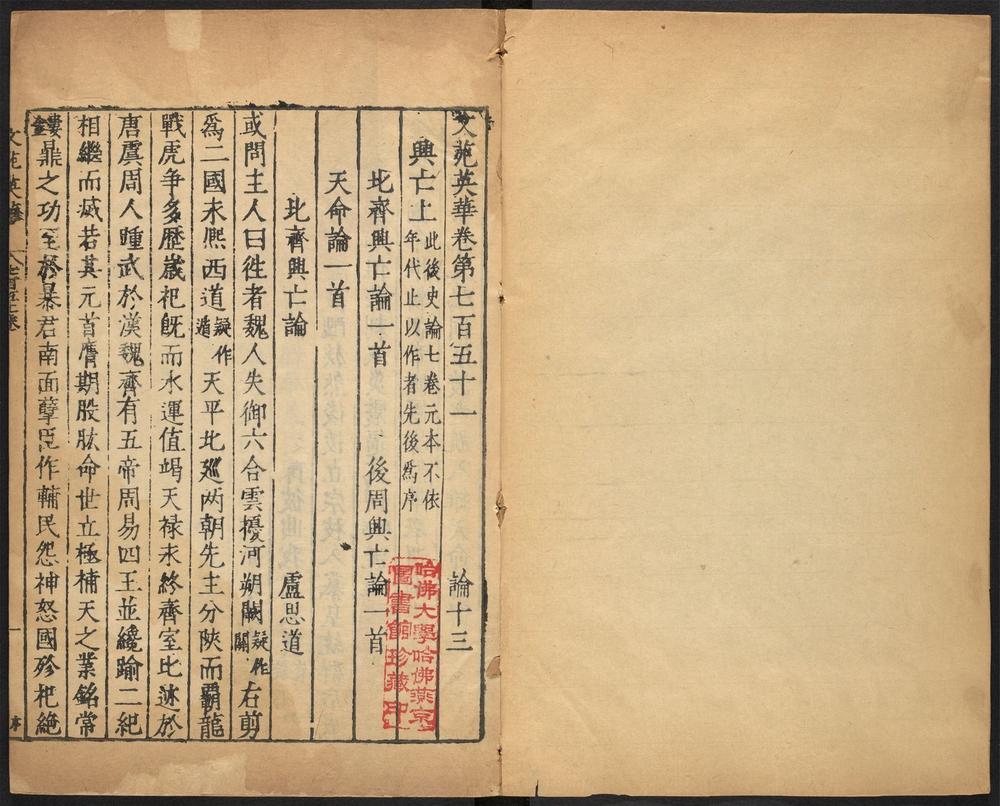 文苑英華卷第七百五十一 論十三
興亡上 此後史論七卷元本不依年代止以作者先後爲序
北齊興亡論一首 後周興亡論一首
天命論一首
北齊興亡論 盧思道
或問主人曰徃者魏人失御六合雲擾河朔闕疑作關右剪
爲二國未熈西道疑作遁天平北廵两朝先主分陝而覇龍
戰虎争多歷歳祀旣而水運值竭天禄未終齊室比迹於
唐虞周人踵武於漢魏齊有五帝周易四王並纔踰二紀
相繼而烕若其元首膺期股肱命世立極補天之業銘常
鏤鼎之功至於暴君南面孽臣作輔民怨神怒國殄祀絶
文苑英華
哈佛大學哈佛燕京
圖書館珍藏印